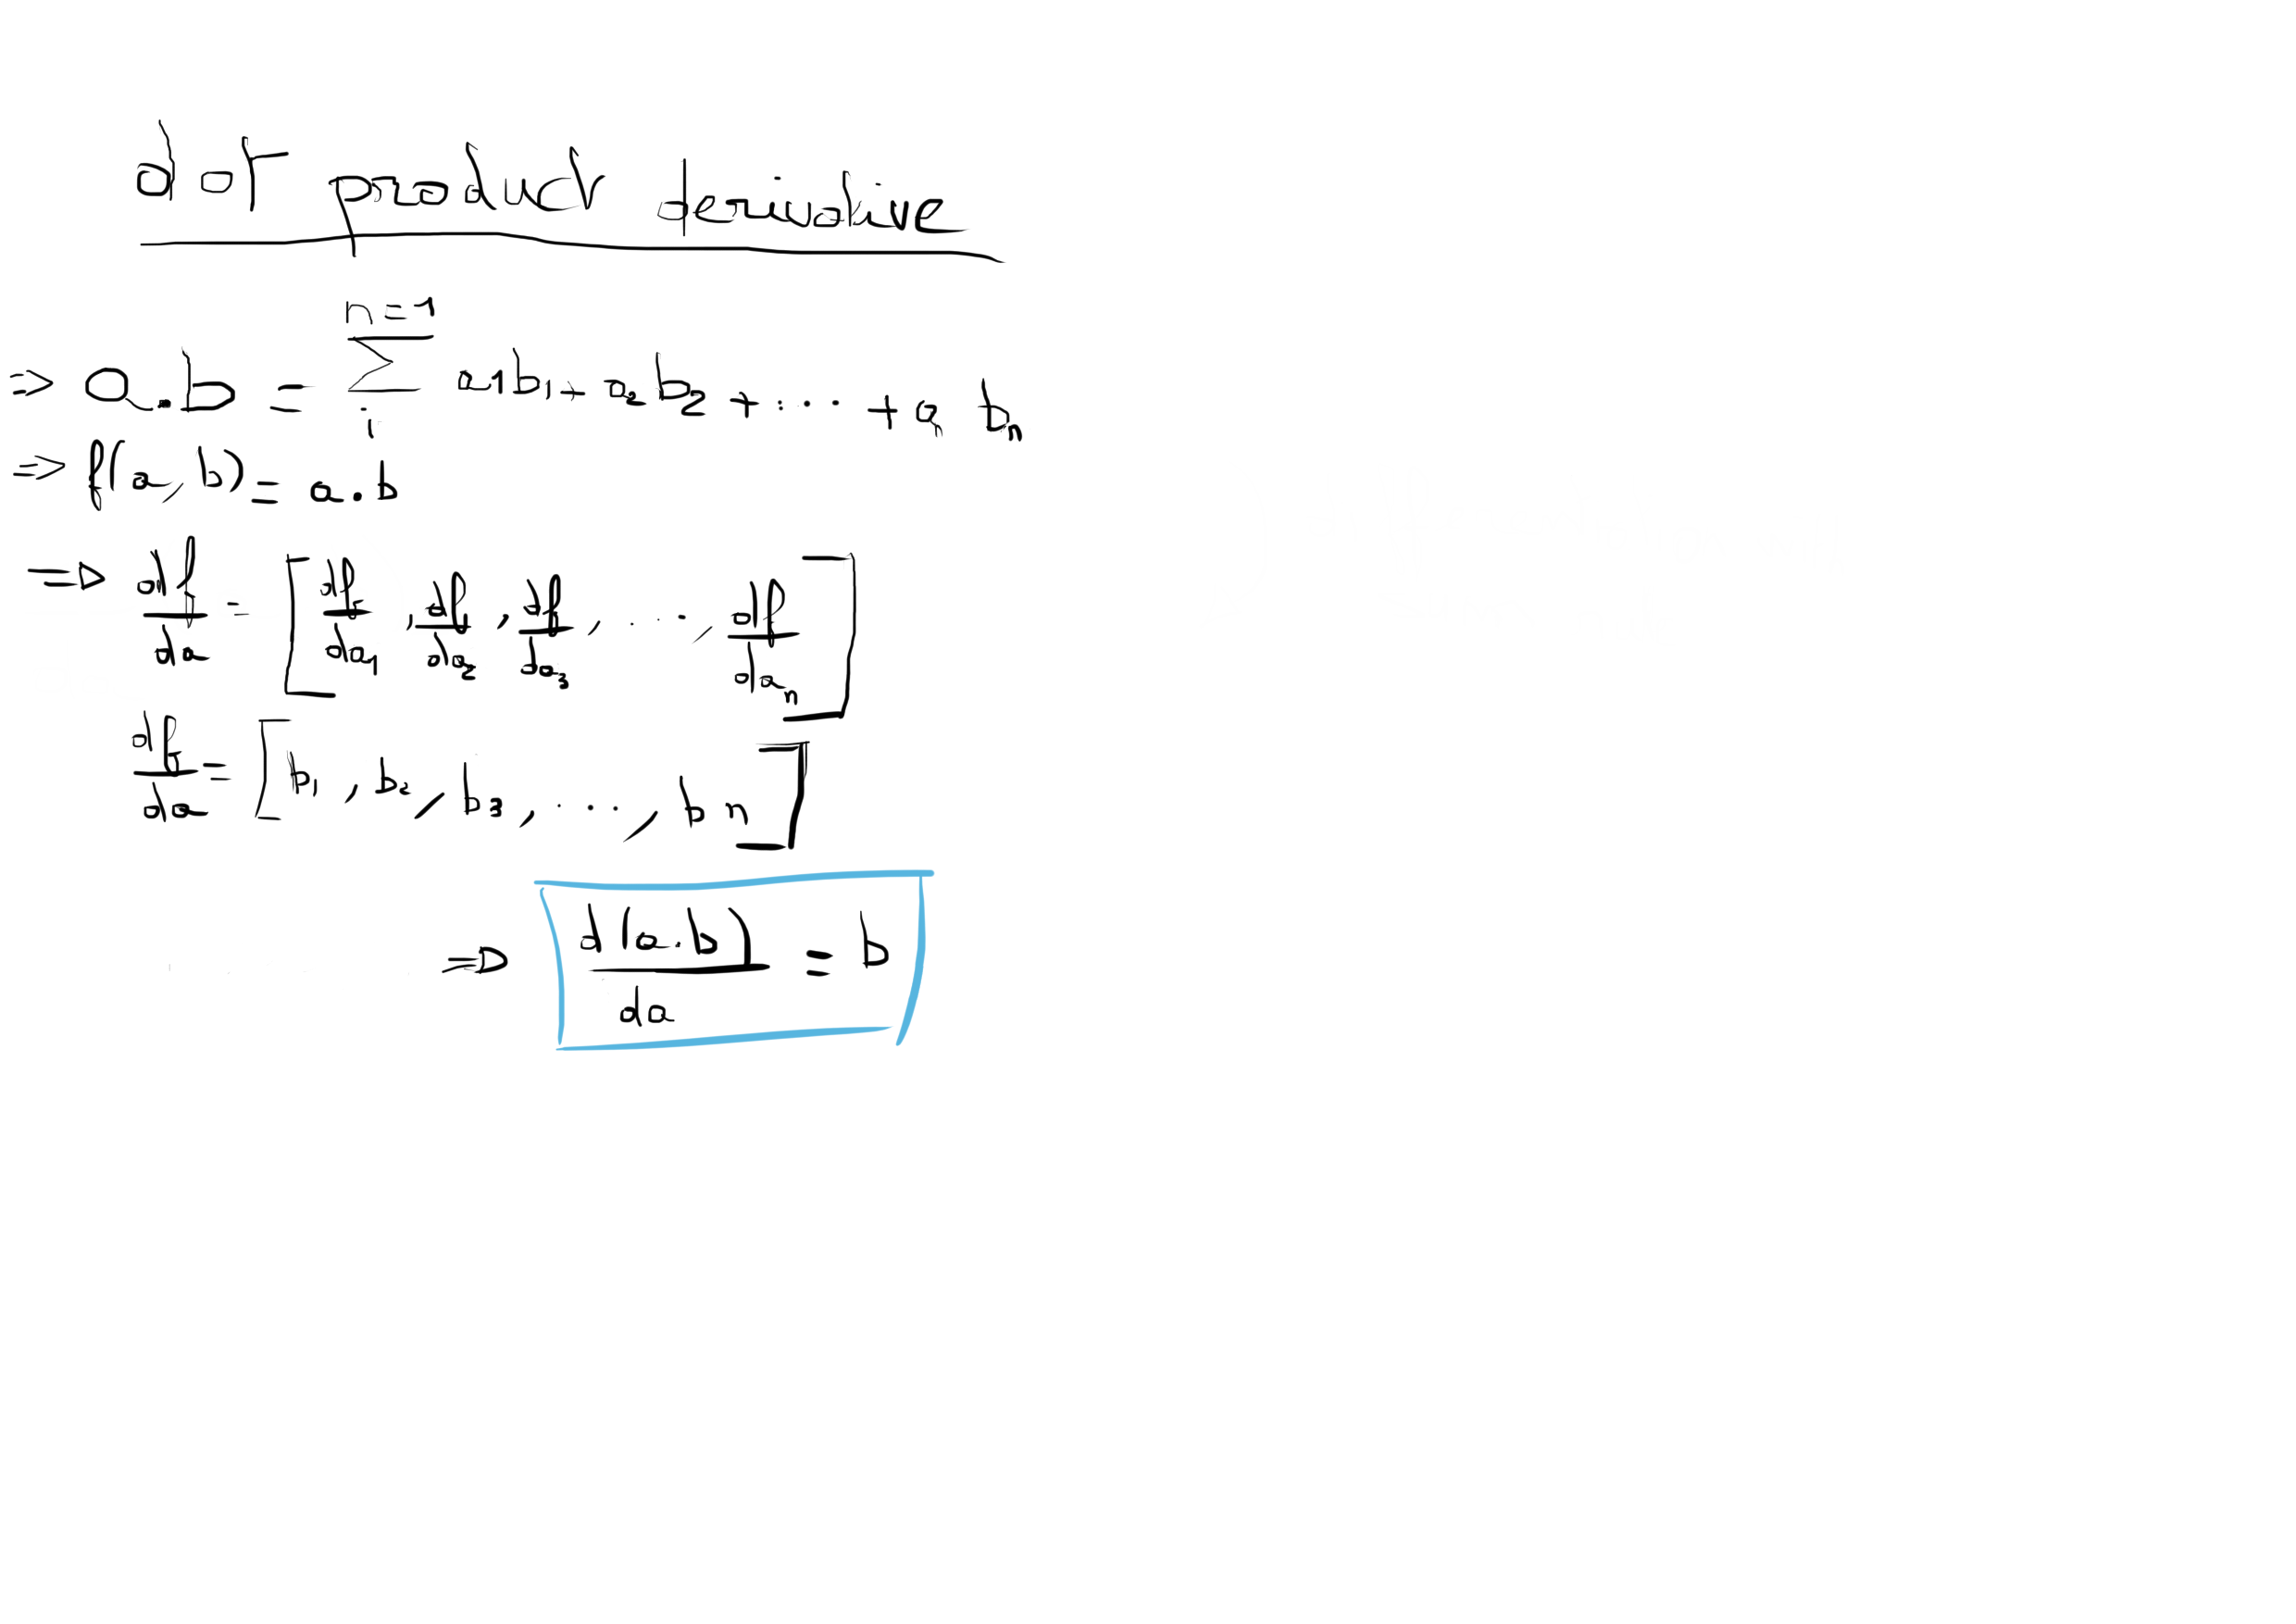 dot product derivative
n=1
=> a.b = ∑ a1b1 + a2 b2 + ... + an bn
i
=> f(a,b) = a.b
=> df/da = [df/da1, df/da2, df/da3, ..., df/dan]
df/da = [b1, b2, b3, ..., bn]
=> d(a.b)/da = b